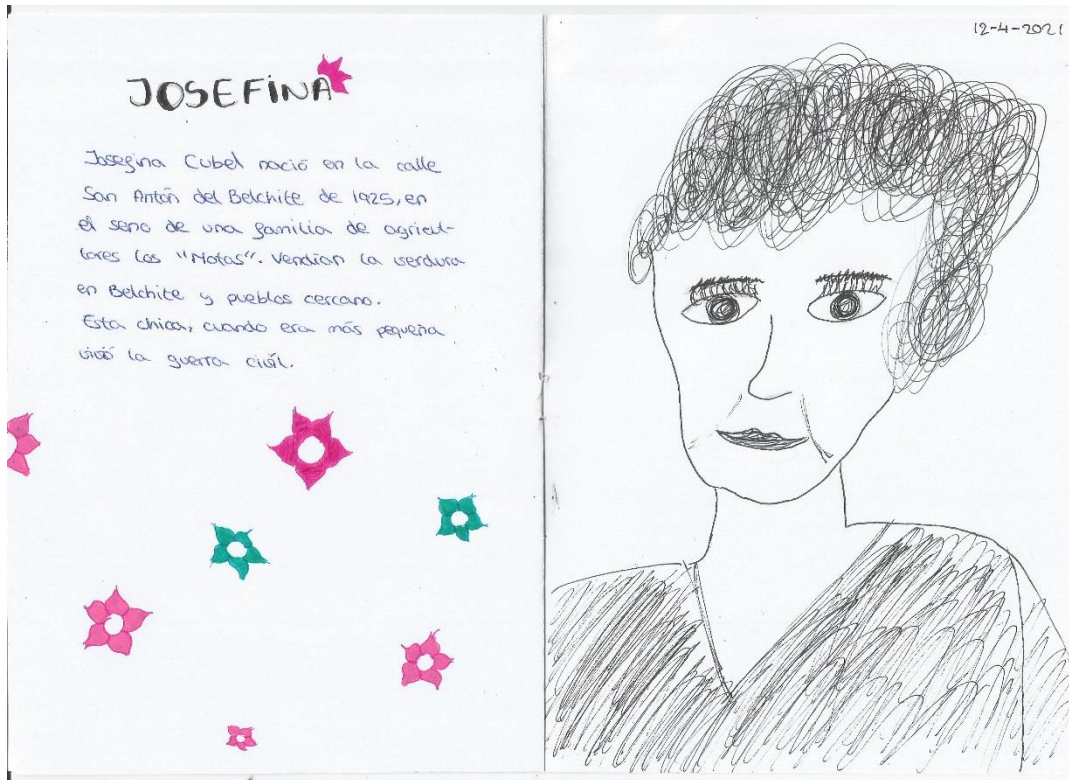 JOSEFINA
Josefina Cubel nació en la calle
San Antón del Belchite de 1925, en
el seno de una familia de agricul-
tores los "Motas". Vendían la verdura
en Belchite y pueblos cercano.
Esta chica, cuando era más pequeña
vivió la guerra civil.
12-4-2021